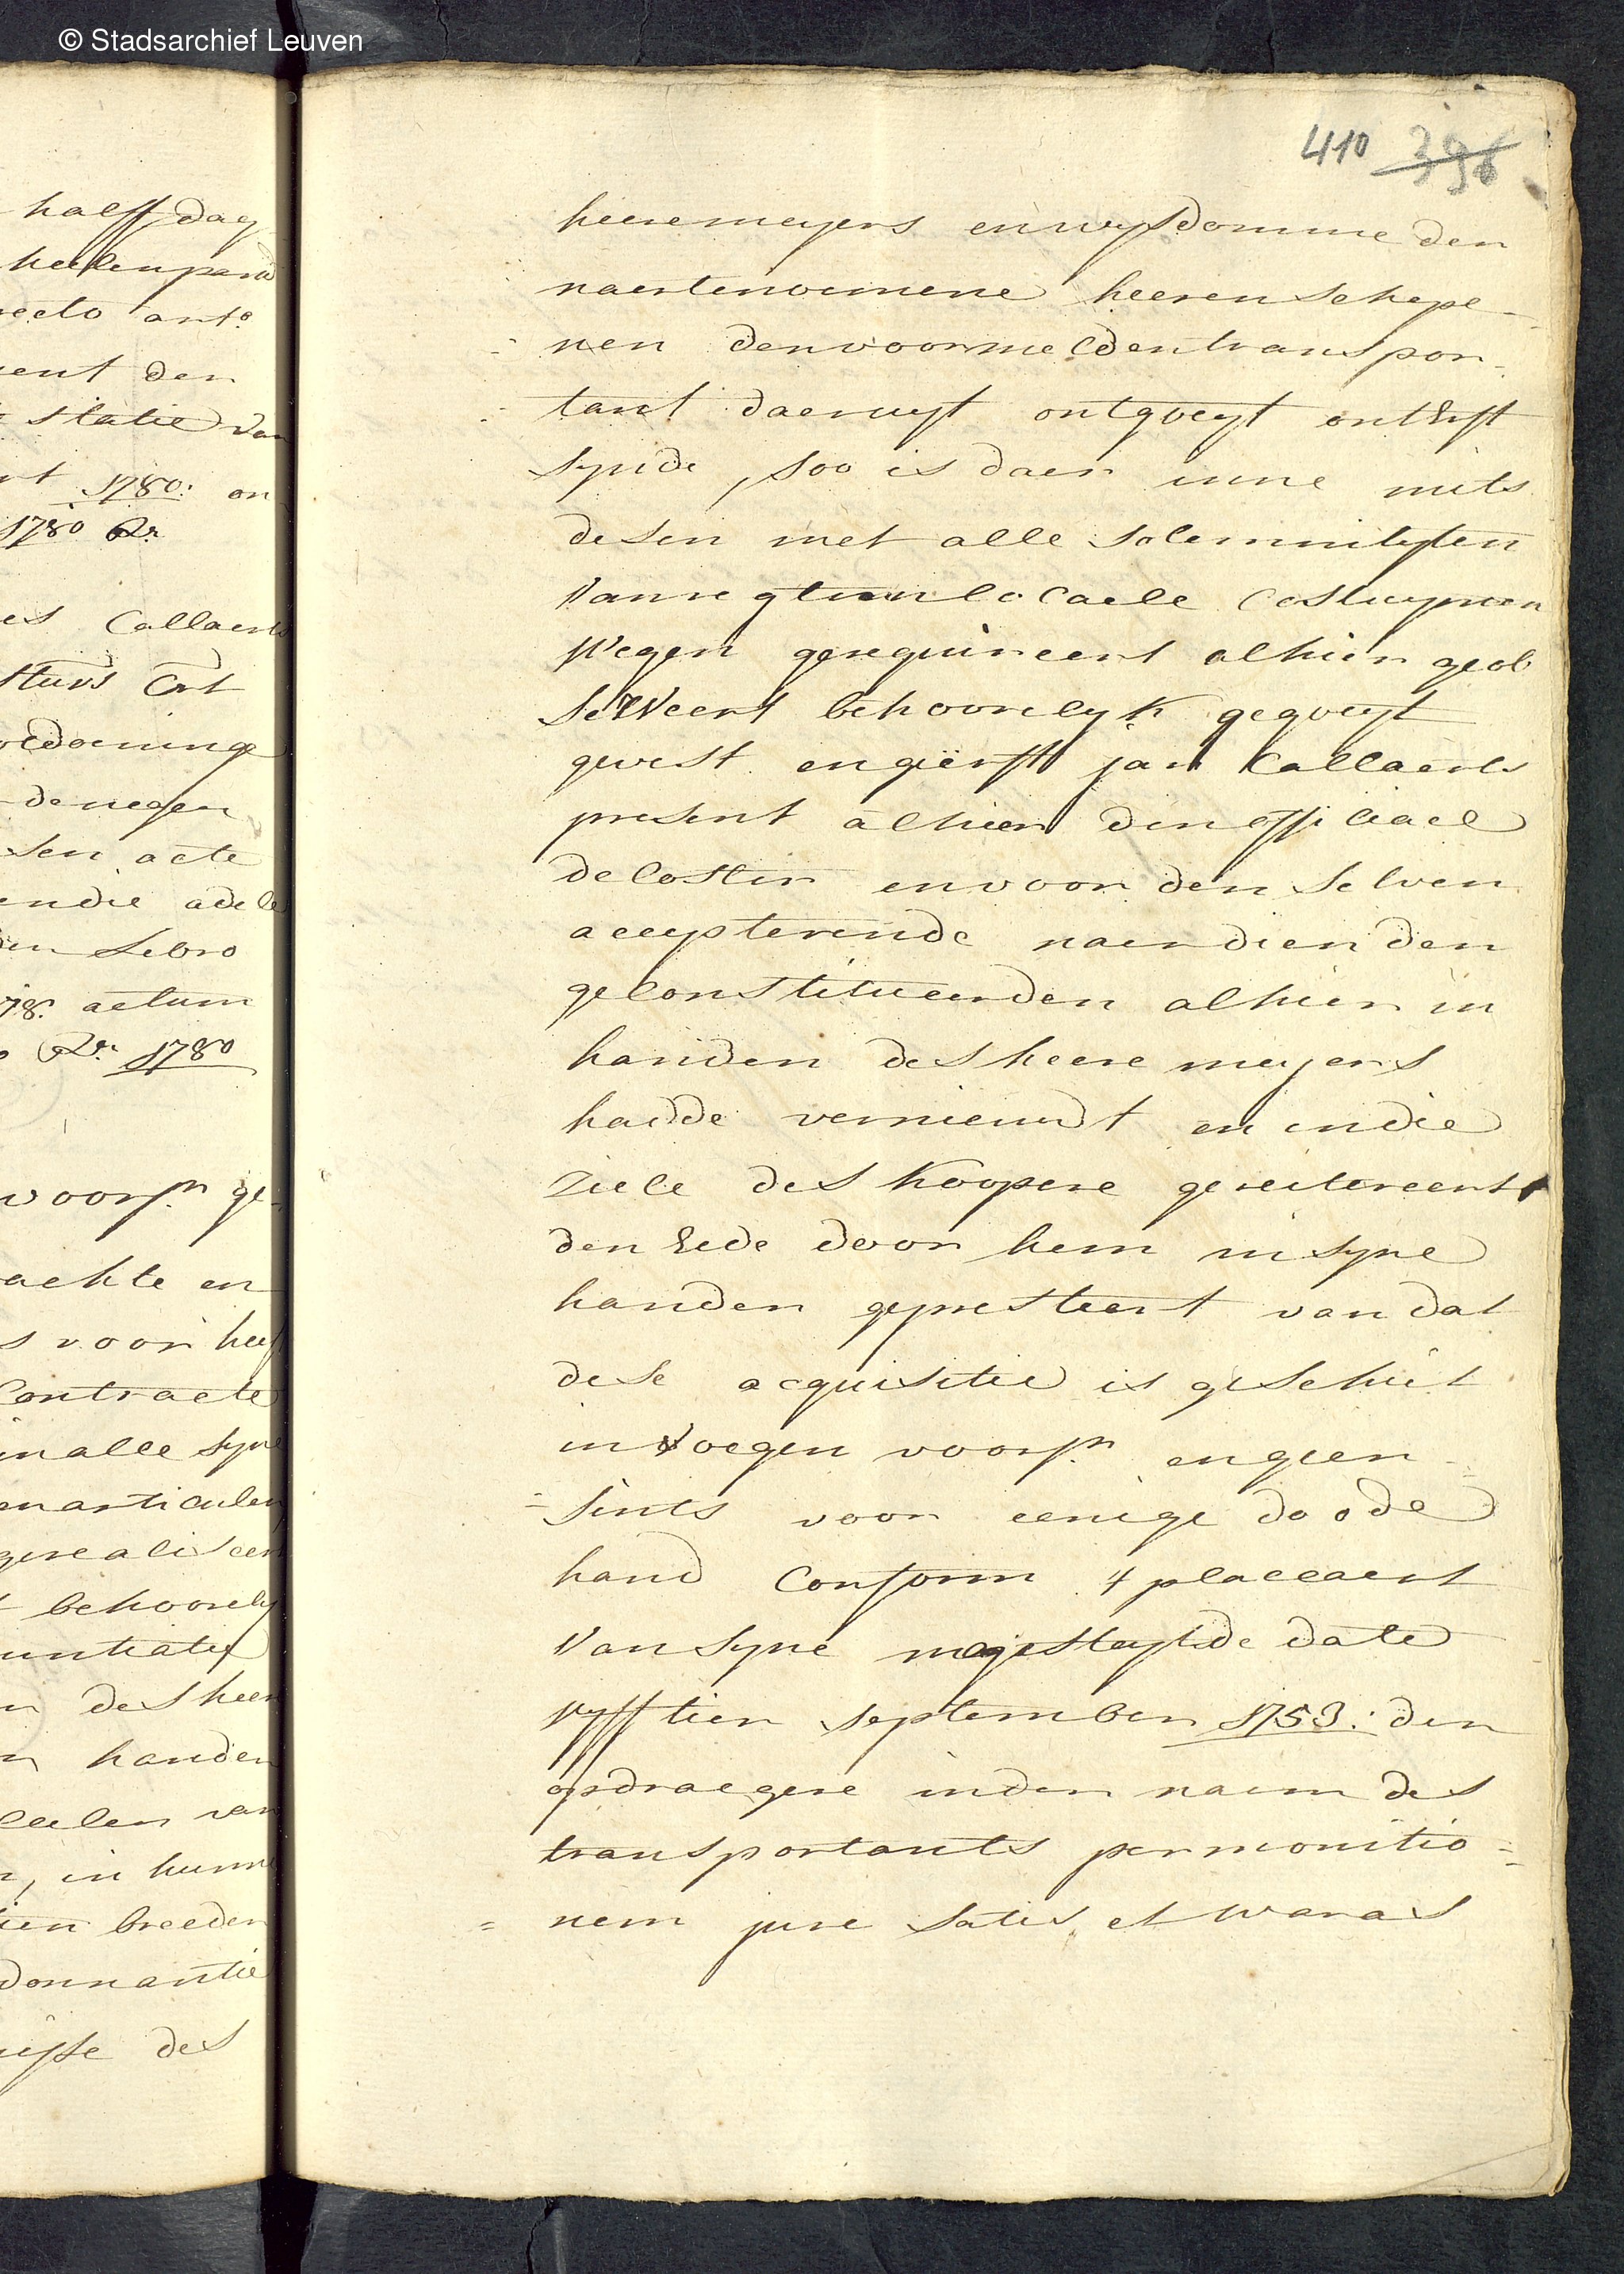 © Stadsarchief Leuven
halff dag
heelen pand
recto ant.
ent den
statie van
rt 1780: on
1780 Rx
es Callaerts
sturs Crt
oldoeninge
denegen
sen acte
endie adele
den Lebro
78. actum
Rx 1780
voorsn ge-
achte en
s voor hee
Contracte
in alle syne
en articulen
gerealiseer
t behoorely
untiatie
n des heer
n handen
eelen van
n, in hunne
ien breeden
donnantie
isse des
410 396
heere meyers en wysdomme den
naertenoemene heeren schepe-
nen den voormelden transpor-
tant daer uyt ontgoeyt ontErft
synde, soo is daer inne mits
desen met alle solemniteyten
Van regt en locaele Costuymen
Wegen gerequireert alhier geob
serveert behoorelyk gegoeyt
gevest en geërft jan Callaerts
present alhier den officiael
de Coster en voor den selven
accepterende naer dien den
geconstitueerden alhier in
handen des heere meyers
hadde vernieuwt en in die
Ziele des Koopere gereitereert
den Eede door hem in syne
handen gepresteert van dat
dese acquisitie is geschiet
in voegen voorsn en geen-
sints voor eenige doode
hand Conform 't placcaert
Van syne majesteyt de date
vyfftien september 1753: den
opdraegere in den naem des
transportants per monitio-
nem jure satis et waras